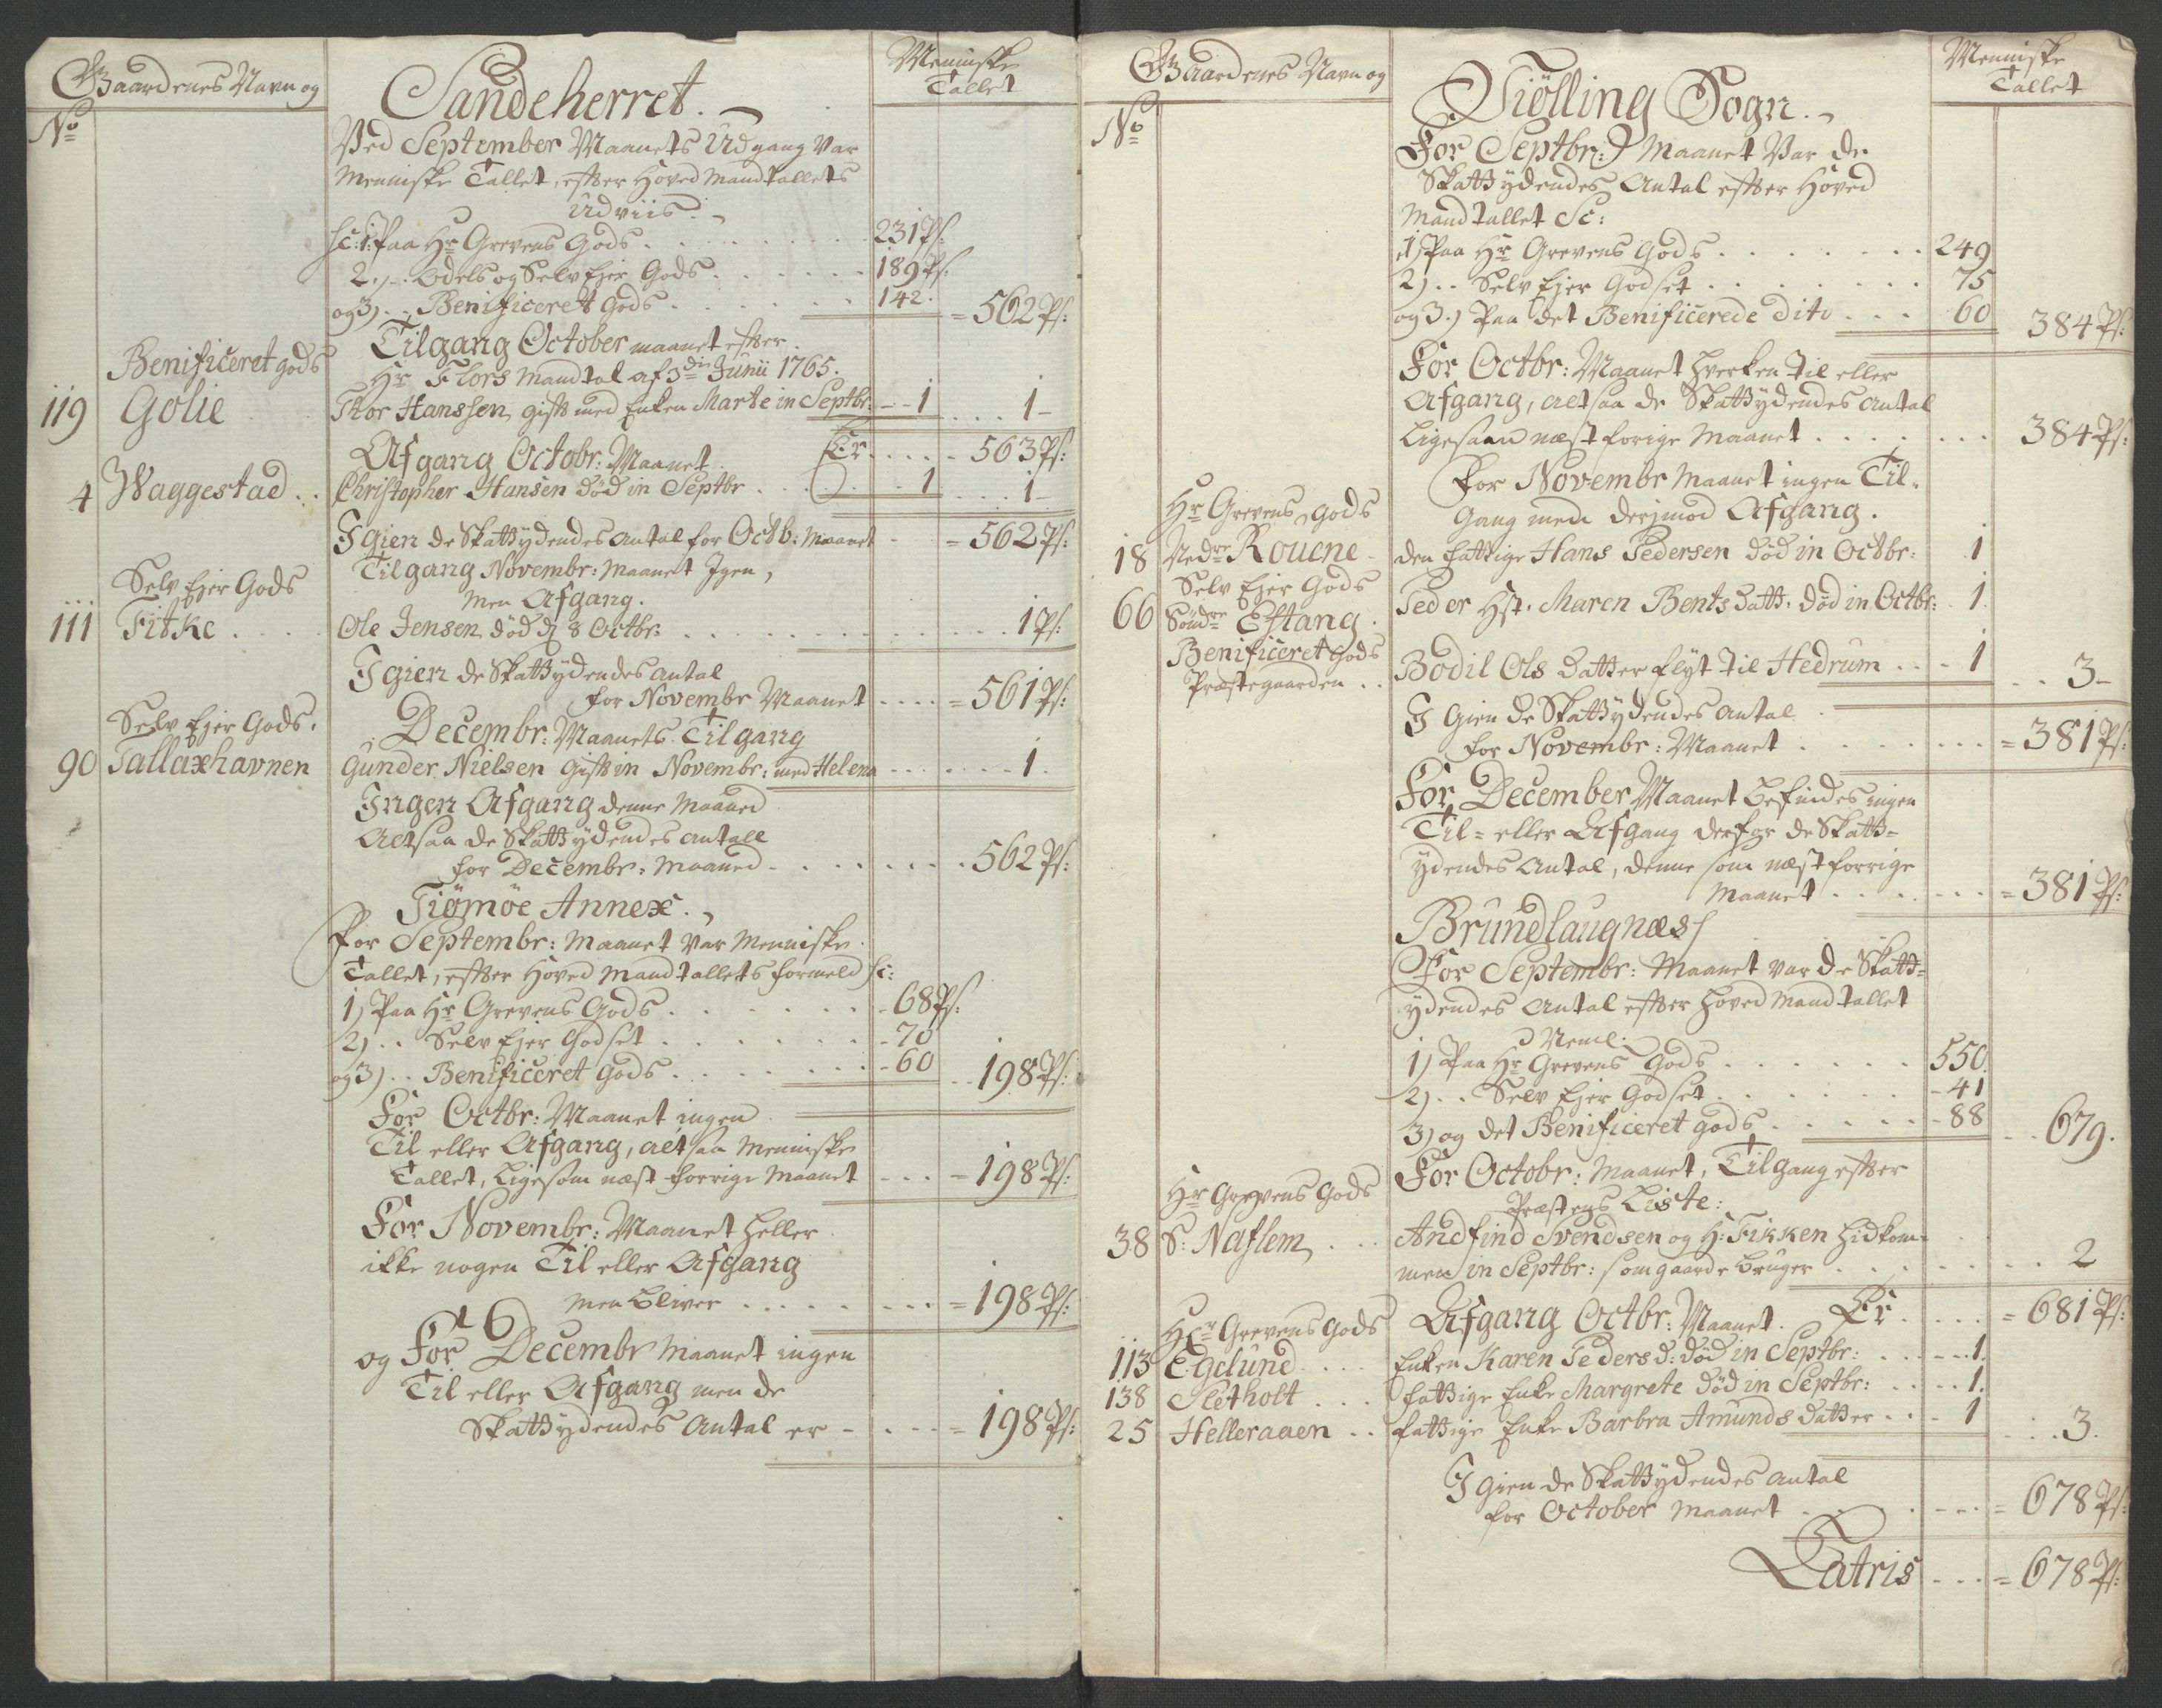 Gaardenes Navn og
No
Sandeherret.
Menniske
Tallet
Ved September Maanets Udgang var
Menniske Tallet, efter Hoved Mandtallets
Udviis.
sc: 1. Paa Hr Grevens Gods 231 Ps:
2. Odels og Selv Ejer Gods 189 Ps:
og 3) Benificeret Gods 142. = 562 Ps:
Tilgang October maanet efter
Hr Flors Mandtal af 3die Junii 1765.
Benificeret gods
119 Golie Thor Hanssen gift med Enken Marte in Septbr: 1 1
Er 563 Ps:
Afgang Octobr: Maanet
4 Waggestad Christopher Hansen død in Septbr 1 1
Igien de Skattÿdendes Antal for Octb: Maanet = 562 Ps:
Tilgang Novembr: Maanet Igen,
Men Afgang.
Selv Ejer Gods
111 Fitke Ole Jensen død d 8 Octbr: 1 Ps:
Igien de Skattÿdendes Antal
for Novembr Maanet = 561 Ps:
Decembr: Maanets Tilgang
Selv Ejer Gods.
90 Tallaxhavnen Gunder Nielsen gift in Novembr: med Helena 1.
Ingen Afgang denne Maaned
Altsaa de Skattÿdendes Antall
for Decembr: Maaned 562 Ps:
Tiømöe Annex.
For Septembr: Maanet var Menniske
Tallet, efter Hoved Mandtallets formeld sc:
1) Paa Hr Grevens Gods 68 Ps:
2) Selv Ejer Godset 70
og 3) Benificeret Gods 60 198 Ps:
For Octbr: Maanet ingen
Til eller Afgang, altsaa Menniske
Tallet, Ligesom næst forrige Maanet = 198 Ps:
For Novembr: Maanet heller
ikke nogen Til eller Afgang
Men bliver = 198 Ps:
og For Decembr Maanet ingen
Til eller Afgang men de
Skattÿdendes Antal er = 198 Ps:
Gaardenes Navn og
No
Tiølling Sogn.
Menniske
Tallet
For Septbr: Maanet var de
Skattÿdendes Antal efter Hoved
Mandtallet Sc:
1) Paa Hr Grevens Gods 249
2) Selv Ejer Godset 75
og 3.) Paa det Benificerede dito 60 384 Ps:
For Octbr: Maanet hverken Til eller
Afgang, altsaa de Skattÿdendes Antal
Ligesaa næst forige Maanet 384 Ps:
For Novembr Maanet ingen Til-
gang men derimod Afgang.
Hr Grevens Gods
18 Nedre Rouene den fattige Hans Pedersen død in Octbr: 1
Selv Ejer Gods
66 Søndre Eftang Peder Hst. Maren Bents Datt: død in Octbr: 1.
Benificeret Gods
Præstegaarden Bodil Ols Datter flyt til Hedrum 1 3
Igien de Skattÿdendes Antal
for Novembr: Maanet = 381 Ps:
For December Maanet befindes ingen
Til= eller Afgang derfor de Skatt=
ÿdendes Antal, denne som næst forrige
Maanet = 381 Ps:
Brundlaugnæs
For Septembr: Maanet var de Skatt=
ÿdendes Antal efter hoved Mandtallet
Neml:
1) Paa Hr Grevens Gods 550.
2) Selv Ejer Godset 41
3) og det Benificeret gods 88 679.
For Octobr: Maanet, Tilgang efter
Præstens Liste:
Hr Grevens Gods
38 S: Naflem Andfind Svendsen og H: Fikken hidkom=
men in Septbr: som gaard bruger 2
Er = 681 Ps:
Afgang Octbr: Maanet.
Hr Grevens Gods
113 Egelund Enken Karen Peders d: død in Septbr: 1.
138 Sletholt fattige Enke Margrete død in Septbr: 1.
25 Helleraaen fattige Enke Barbra Amunds datter 1 3.
Igien de Skattÿdendes Antal
for October Maanet = 678 Ps:
Latris = 678 Ps: